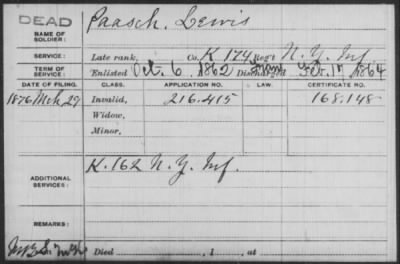 DEAD
Paasch, Lewis
NAME OF SOLDIER:
SERVICE: Late rank, Co. K 174 Reg't N.Y. Inf.
TERM OF SERVICE: Enlisted Oct. 6, 1862 Discharged Feb. 17, 1864
DATE OF FILING. CLASS. APPLICATION NO. LAW. CERTIFICATE NO.
1876 Mch 29 Invalid, 216.415 168.148
Widow,
Minor,
ADDITIONAL SERVICES: K. 162 N.Y. Inf.
REMARKS:
Died , 1 , at